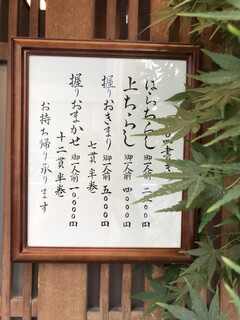 ばらちらし 御一人前
上ちらし 御一人前 四、〇〇〇円
握りおきまり 御一人前 五、〇〇〇円
七貫 半巻
握りおまかせ 御一人前 一〇、〇〇〇円
十二貫 半巻
お持ち帰り承ります